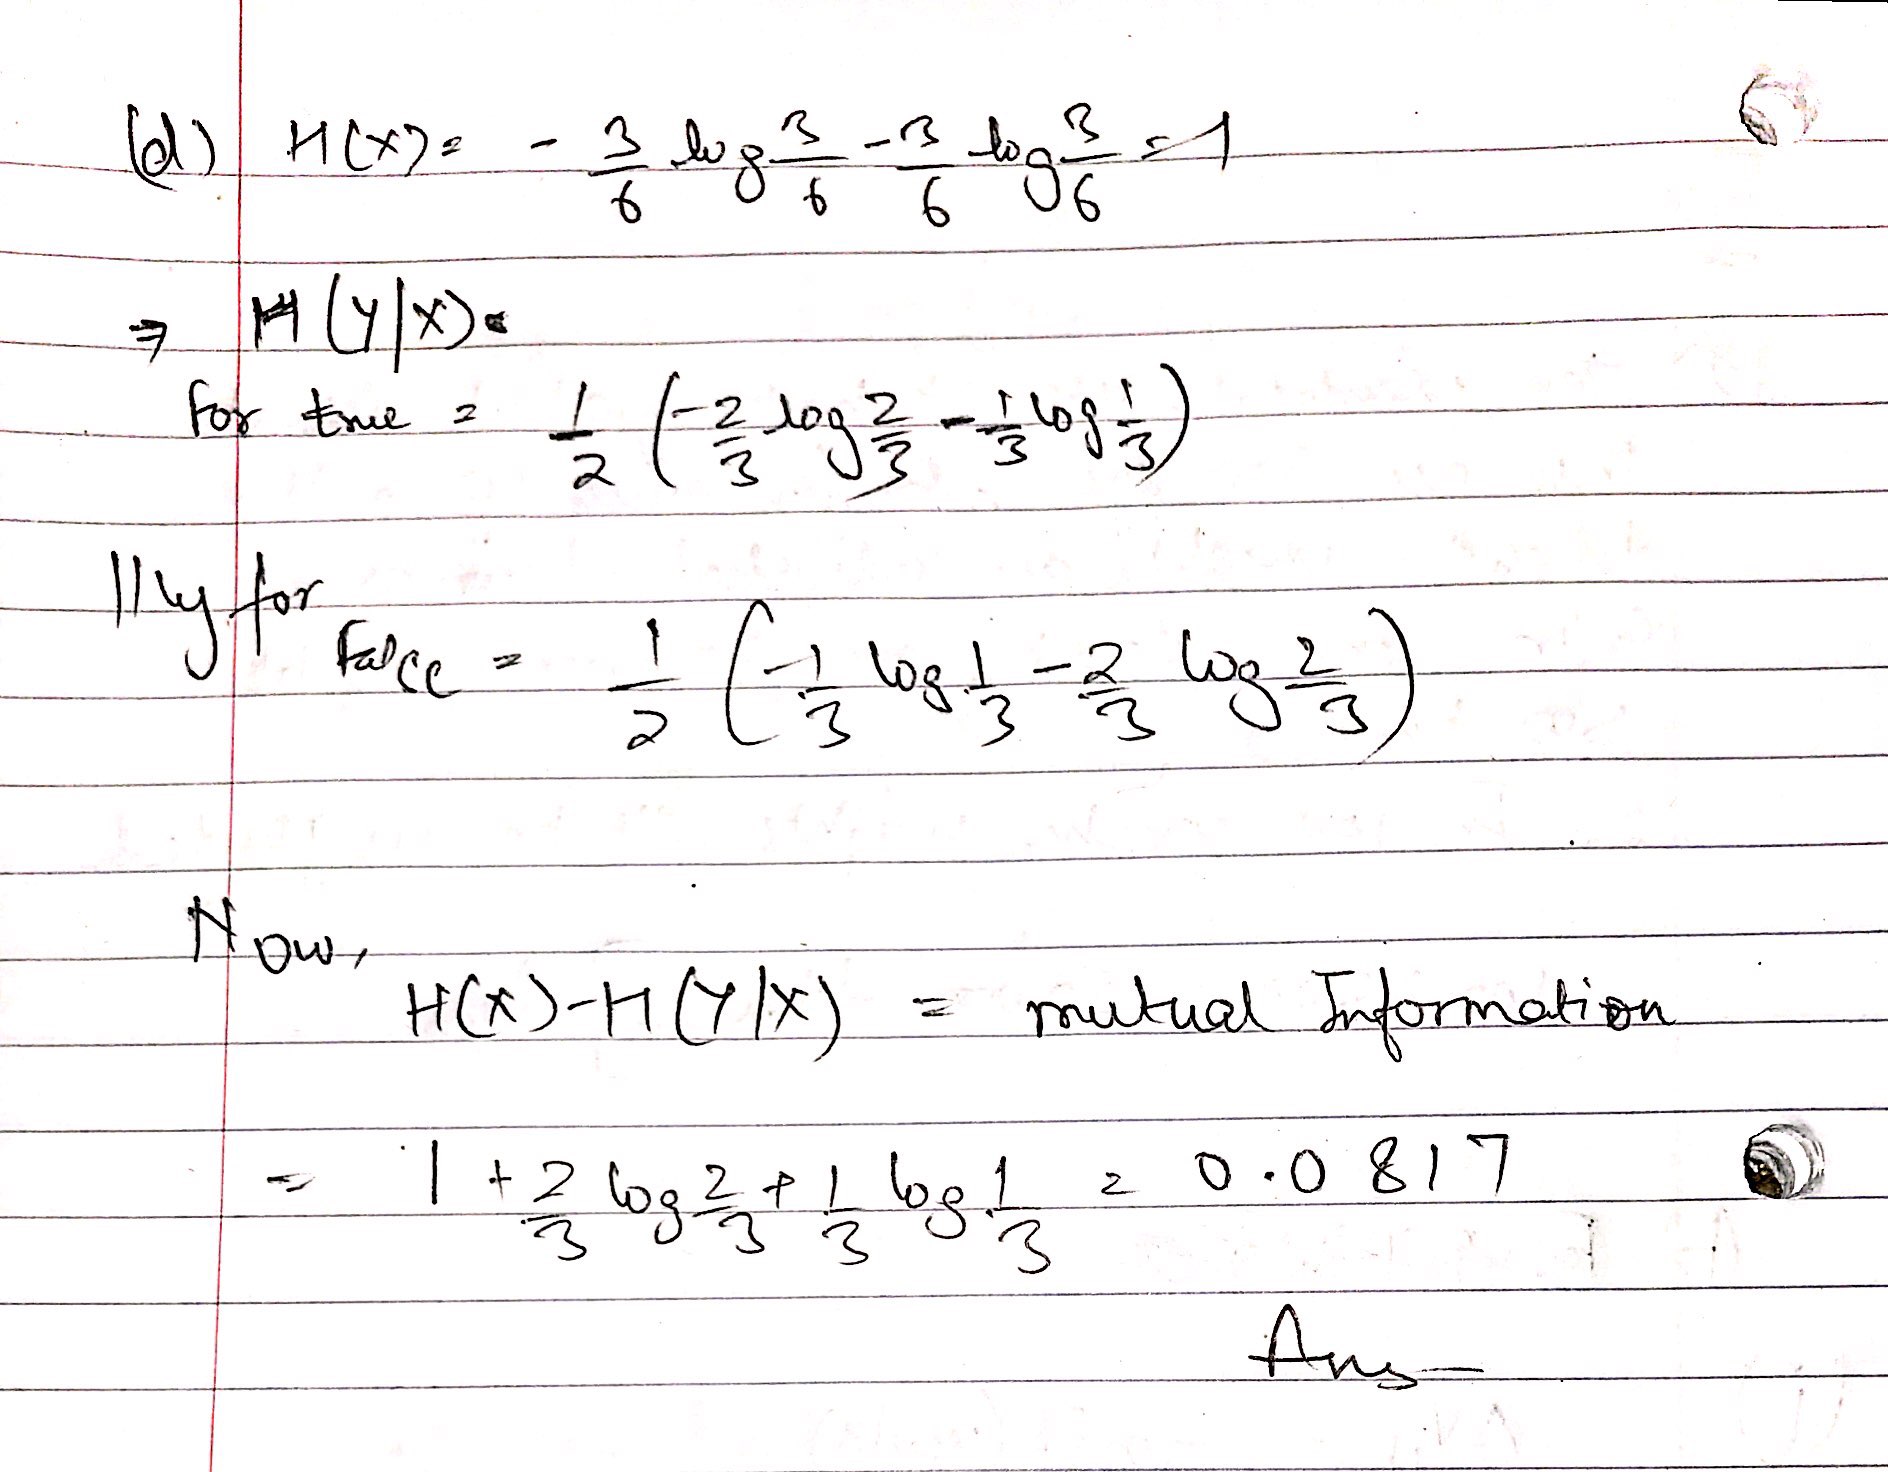 (d) H(X) = - 3/6 log 3/6 - 3/6 log 3/6 = 1
⇒ H(Y|X) =
For true = 1/2 (-2/3 log 2/3 - 1/3 log 1/3)
llly for
False = 1/2 (-1/3 log 1/3 - 2/3 log 2/3)
Now,
H(X) - H(Y|X) = mutual Information
= 1 + 2/3 log 2/3 + 1/3 log 1/3 = 0.0817
Ans